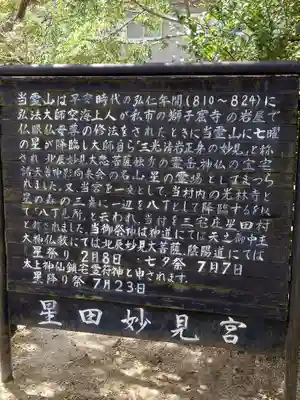 当霊山は平安時代の弘仁年間(810〜824)に
弘法大師空海上人が私市の獅子窟寺の岩屋で
仏眼仏母尊の修法をされたときに当霊山に七曜
の星が降臨し大師自ら「三光清岩正身の妙見」と称
され、北辰妙見大悲菩薩独秀の霊岳神仏の宝宅
諸天善神影向来会の名山星の霊場としてまつら
れました。又当宮を一点として、当村内の光林寺と
星の森の三点に一辺を八丁として降臨するを以
て「八丁見所」と云われ、当村を三宅庄星田村
と称されました。当御祭神は神道にては天之御中主
大神仏教にては北辰妙見大菩薩、陰陽道にては
太上神仙鎮宅霊符神と申されます。
星祭り 2月8日 七夕祭 7月7日
星降り祭 7月23日
星田妙見宮